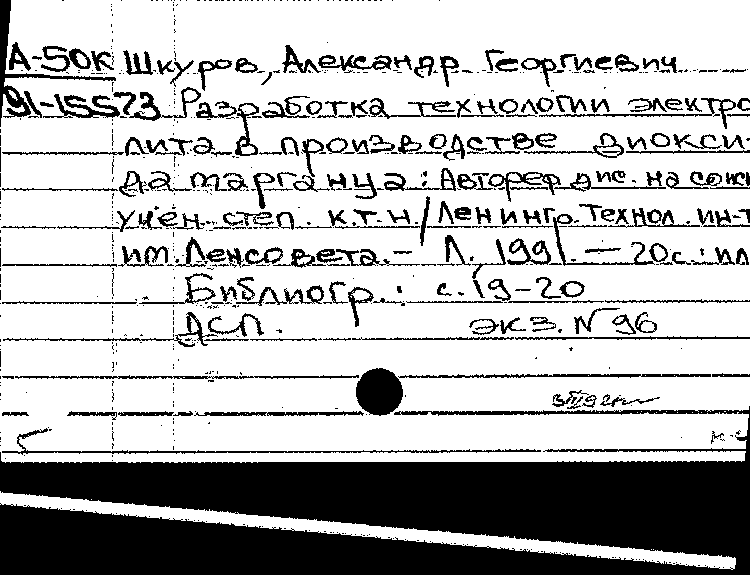 А-50к Шкуров, Александр Георгиевич
91-15573 Разработка технологии электро
лита в производстве диокси-
да марганца: Автореф дис. на соиск
учен. степ. к.т.н. / Ленингр. Технол. ин-т
им. Ленсовета. - Л. 1991. - 20с.: ил
Библиогр.: с. 19-20
ДСП. экз. N 96
5